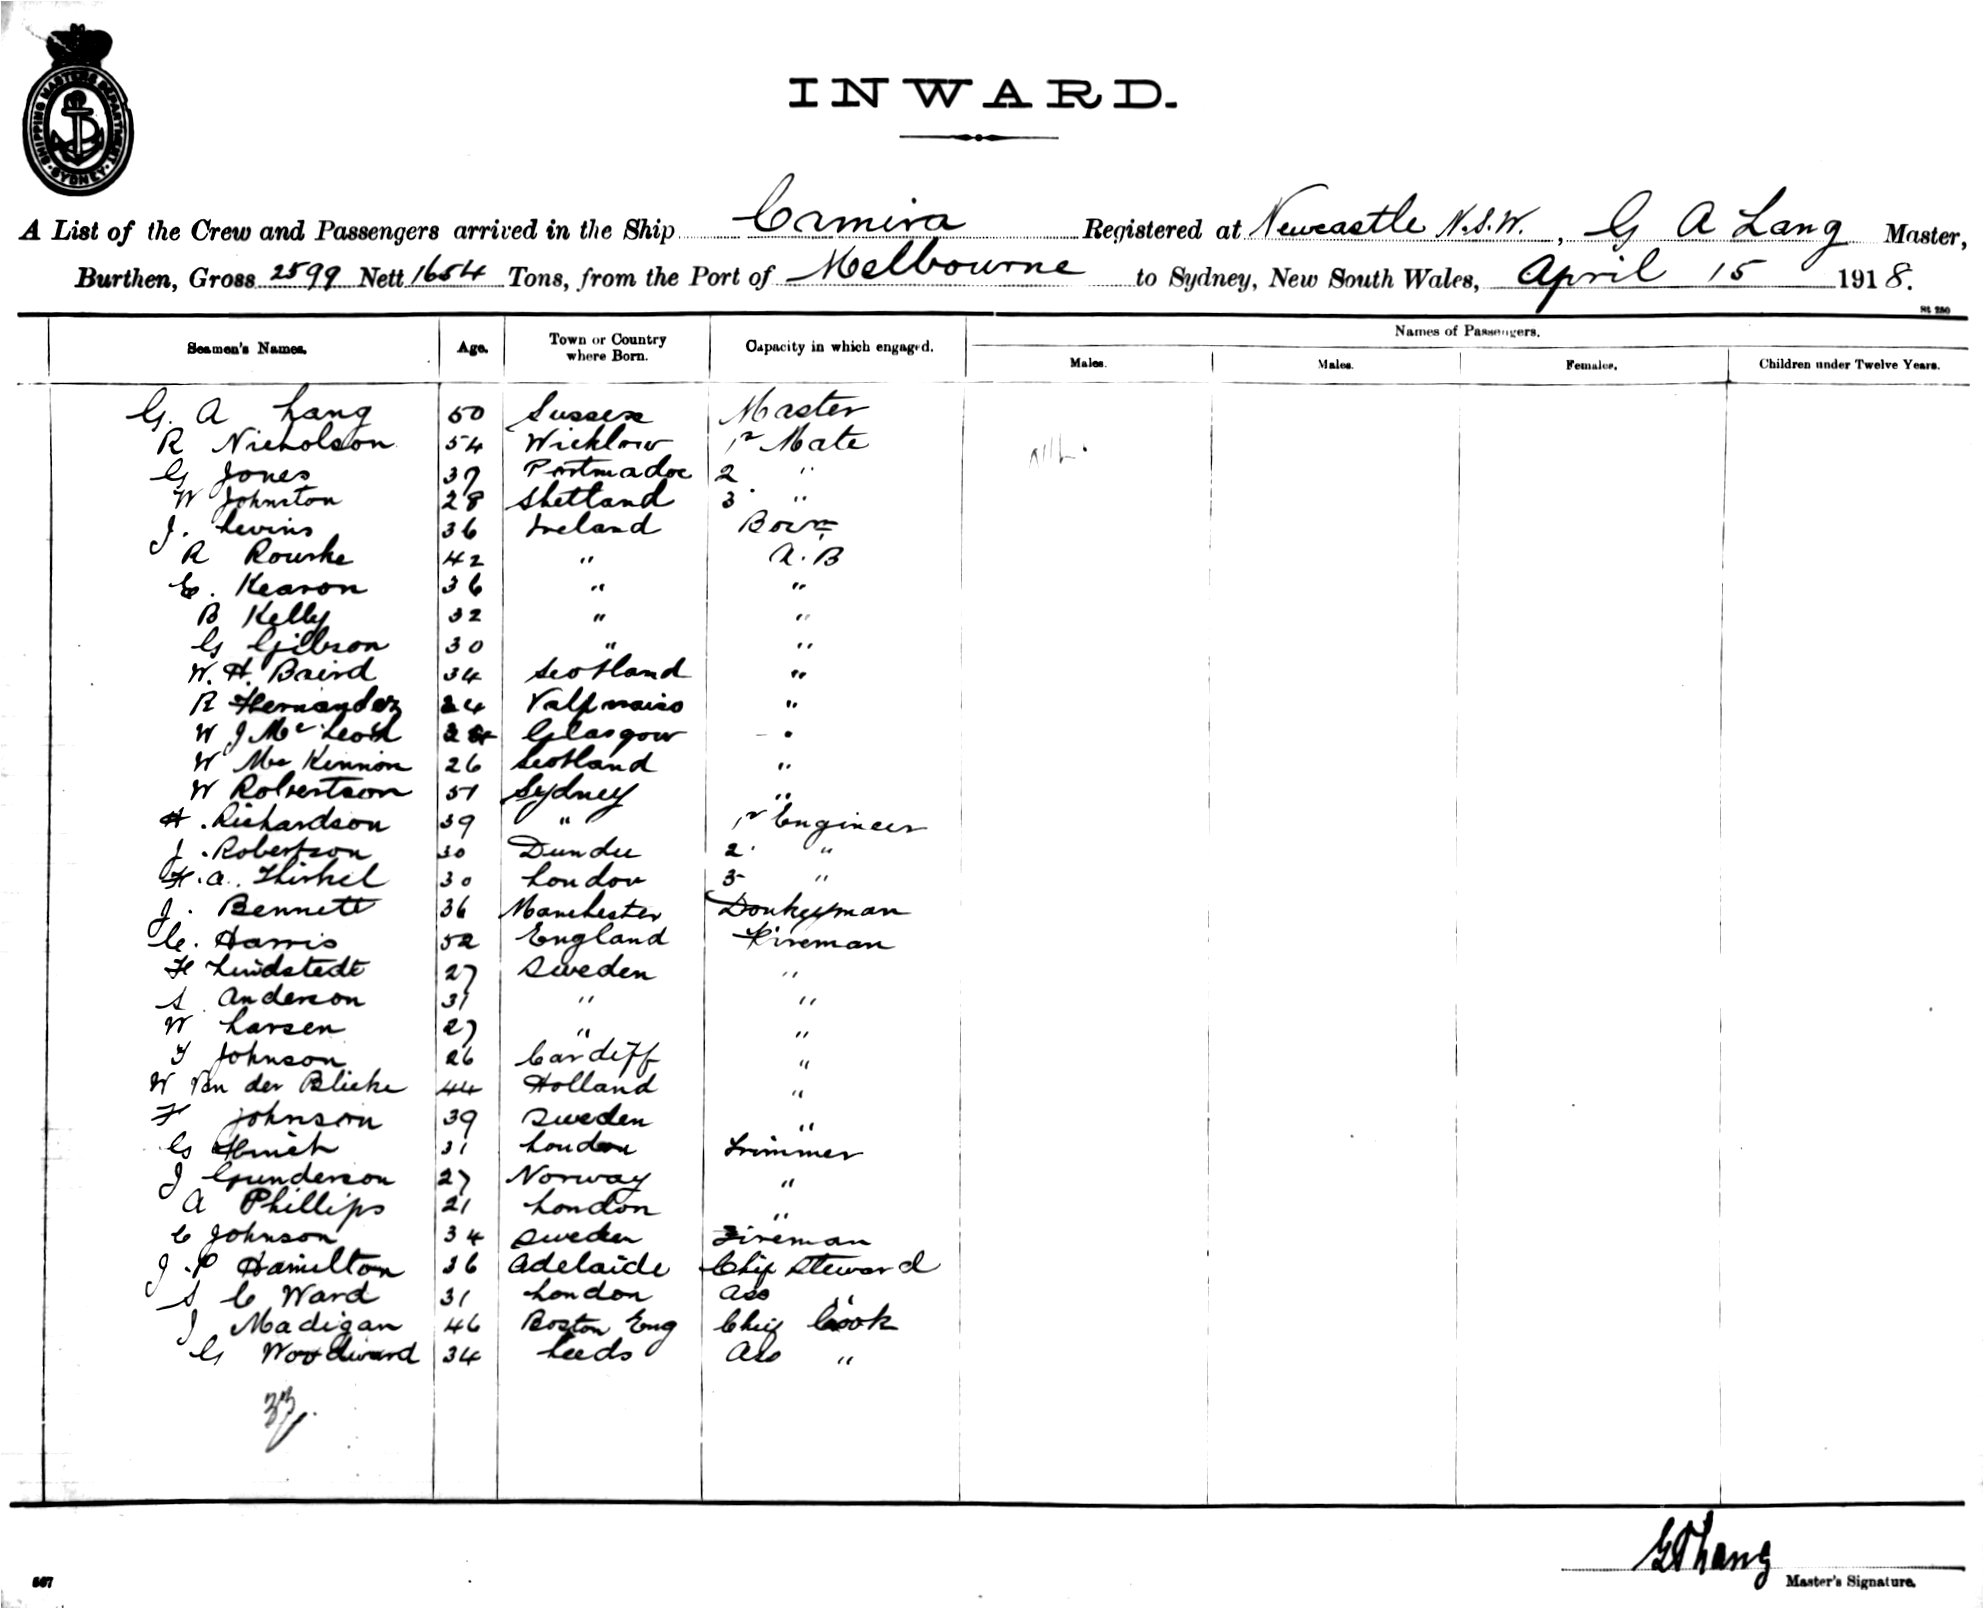 SHIPPING MASTERS DEPARTMENT · SYDNEY ·
INWARD.
A List of the Crew and Passengers arrived in the Ship Ormira Registered at Newcastle N.S.W., G A Lang Master,
Burthen, Gross 2599 Nett 1654 Tons, from the Port of Melbourne to Sydney, New South Wales, April 15 1918.
St 280
Seamen's Names. Age. Town or Country where Born. Capacity in which engaged. Names of Passengers.
Males. Males. Females. Children under Twelve Years.
G. A Lang 50 Sussex Master
R Nicholson 54 Wicklow 1st Mate
G Jones 37 Portmadoc 2 "
W Johnston 28 Shetland 3 "
J. Levins 36 Ireland
R Rourke 42 " A.B
E. Kearon 36 " "
B Kelly 32 " "
G Gibson 30 " "
W. H. Baird 34 Scotland "
R Hernandez 24 Valparaiso "
W J McLeod Glasgow "
W McKinnon 26 Scotland "
W Robertson 51 Sydney "
H. Richardson 39 " 1st Engineer
J. Robertson 30 Dundee 2 "
H. A. Thirkel 30 London 3 "
J. Bennett 36 Manchester Donkeyman
C. Harris 52 England Fireman
F Lindstedt 27 Sweden "
S Anderson 31 " "
W Larsen 27 " "
F Johnson 26 Cardiff "
W Van der Blieke 44 Holland "
F Johnson 39 Sweden "
G 31 London Trimmer
J Gunderson 27 Norway "
A Phillips 21 London "
C Johnson 34 Sweden Fireman
J. P Hamilton 36 Adelaide Chief Steward
S C Ward 31 London Ass "
J Madigan 46 Boston Eng Chief Cook
G Woodward 34 Leeds Ass "
33
G A Lang
Master's Signature.
567